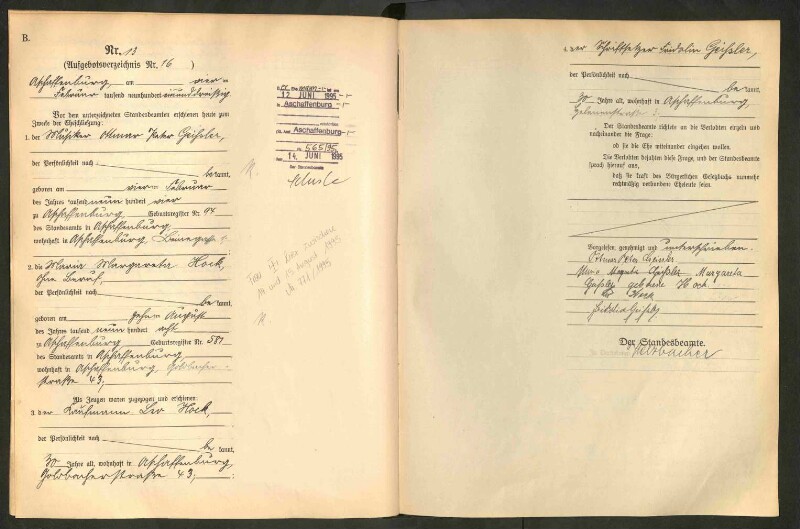 B.
Nr. 13
(Aufgebotsverzeichnis Nr. 16 )
Aschaffenburg, am vier=
Februar tausend neunhundert einunddreißig
Vor dem unterzeichneten Standesbeamten erschienen heute zum
Zwecke der Eheschließung:
1. der Musiker Ottmar Peter Geißler,
der Persönlichkeit nach
be kannt,
geboren am vierten Februar
des Jahres tausend neun hundert vier
zu Aschaffenburg Geburtsregister Nr. 94
des Standesamts in Aschaffenburg
wohnhaft in Aschaffenburg,
2. die Maria Margareta Hock,
ohne Beruf,
der Persönlichkeit nach
be kannt,
geboren am August
des Jahres tausend neun hundert acht
zu Aschaffenburg Geburtsregister Nr. 581
des Standesamts in Aschaffenburg
wohnhaft in Aschaffenburg, Goldbacher=
straße 43,
Als Zeugen waren zugezogen und erschienen:
3. der Kaufmann Leo Hock,
der Persönlichkeit nach
be kannt,
30 Jahre alt, wohnhaft in Aschaffenburg,
Goldbacherstraße 43;
12. JUNI 1995
Aschaffenburg
Aschaffenburg
Nr. 565/95
14. JUNI 1995
1995
4. der Schriftsetzer Geißler,
der Persönlichkeit nach
be kannt,
30 Jahre alt, wohnhaft in Aschaffenburg,
Der Standesbeamte richtete an die Verlobten einzeln und
nacheinander die Frage:
ob sie die Ehe miteinander eingehen wollen.
Die Verlobten bejahten diese Frage, und der Standesbeamte
sprach hierauf aus,
daß sie kraft des Bürgerlichen Gesetzbuchs nunmehr
rechtmäßig verbundene Eheleute seien.
Vorgelesen, genehmigt und unterschrieben.
Ottmar Peter Geissler
Geißler Margareta
Geißler geborene Hock
Leo Hock
Geißler
Der Standesbeamte.